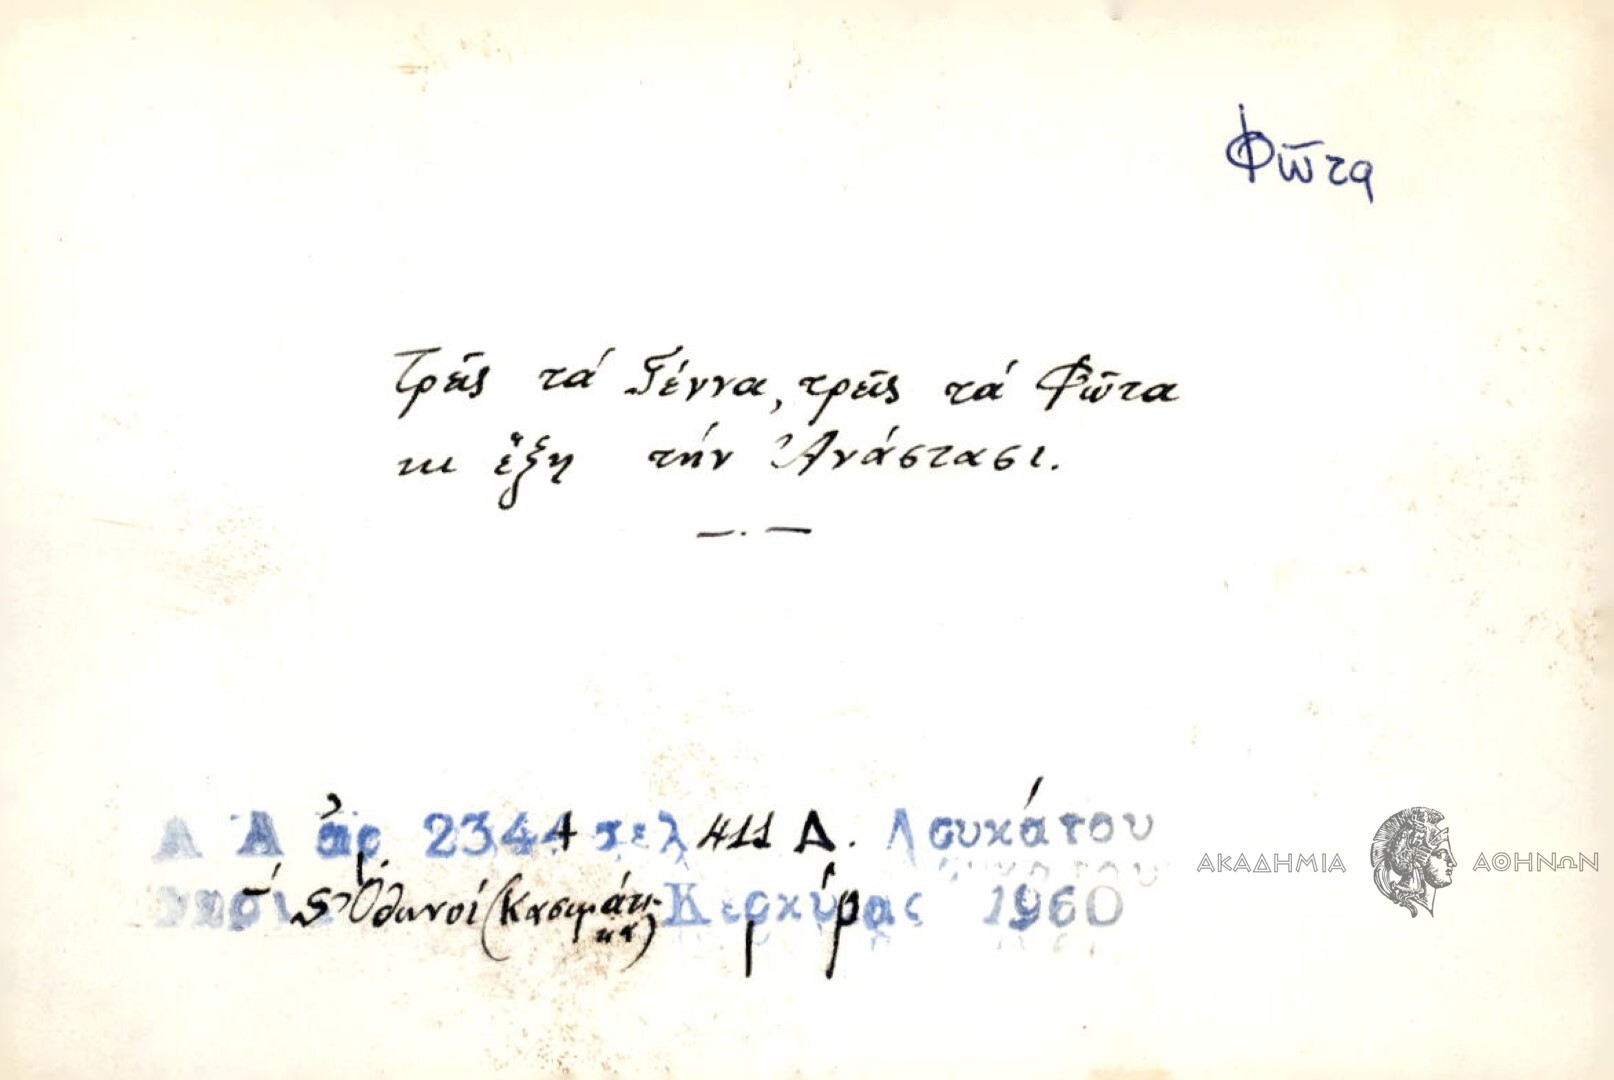 Φῶτα
Τρεῖς τά Γέννα, τρεῖς τά Φῶτα
κι ἕξη τήν Ἀνάστασι.
Λ Α ἀρ 2344 σελ 411 Δ. Λουκάτου
Ὀθωνοί Κερκύρας 1960
ΑΚΑΔΗΜΙΑ ΑΘΗΝΩΝ